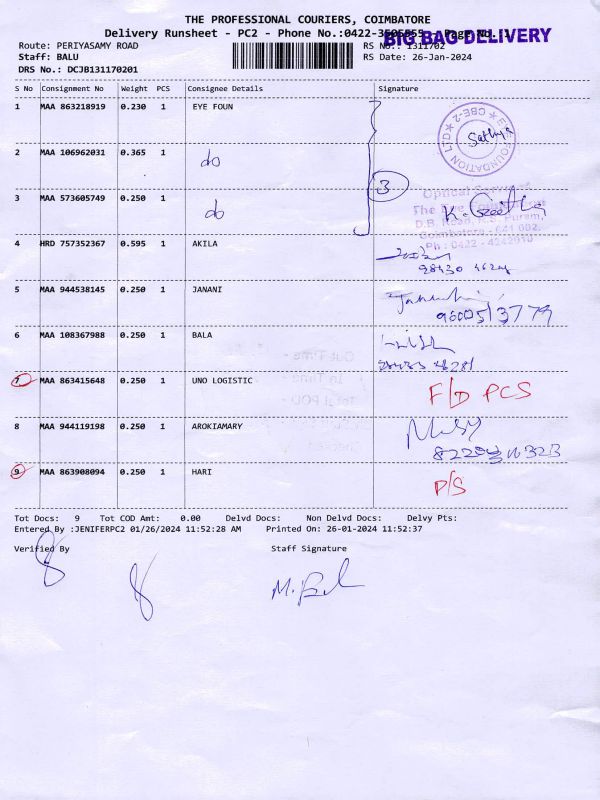 THE PROFESSIONAL COURIERS, COIMBATORE
Delivery Runsheet - PC2 - Phone No.:0422- Page No.:1
BIG BAG DELIVERY
Route: PERIYASAMY ROAD RS No.: 1311702
Staff: BALU RS Date: 26-Jan-2024
DRS No.: DCJB131170201
S No Consignment No Weight PCS Consignee Details Signature
1 MAA 863218919 0.230 1 EYE FOUN
CBE-2 Sathya
2 MAA 106962031 0.365 1 do
3
3 MAA 573605749 0.250 1 do K. Geetha
Optical
D.B. Road, R.S. Puram,
Coimbatore - 641 002.
Ph : 0422 - 4242010
4 HRD 757352367 0.595 1 AKILA
5 MAA 944538145 0.250 1 JANANI
9600513779
6 MAA 108367988 0.250 1 BALA
7 MAA 863415648 0.250 1 UNO LOGISTIC F/D PCS
8 MAA 944119198 0.250 1 AROKIAMARY
9 MAA 863908094 0.250 1 HARI P/S
Tot Docs: 9 Tot COD Amt: 0.00 Delvd Docs: Non Delvd Docs: Delvy Pts:
Entered By :JENIFERPC2 01/26/2024 11:52:28 AM Printed On: 26-01-2024 11:52:37
Verified By Staff Signature